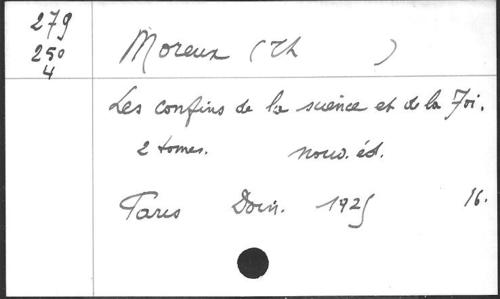 279
250
4
Moreux (Th )
Les confins de la science et de la Foi.
2 tomes. nouv. éd.
Paris Doin. 1925 16.